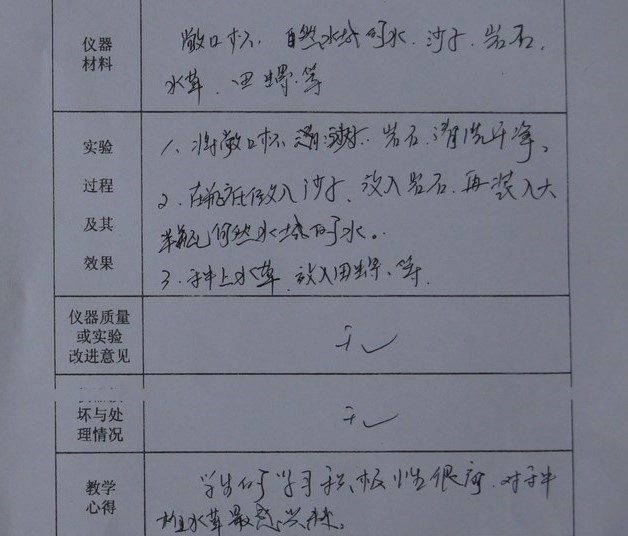 仪器
材料
敞口杯、自然水域的水、沙子、岩石、
水草、田螺等
实验
过程
及其
效果
1、将敞口杯、沙子、岩石、清洗干净。
2、在瓶底放入沙子、放入岩石、再装入大
半瓶自然水域的水。
3、种上水草、放入田螺、等。
仪器质量
或实验
改进意见
无
坏与处
理情况
无
教学
心得
学生们学习积极性很高、对种
植水草最感兴趣。